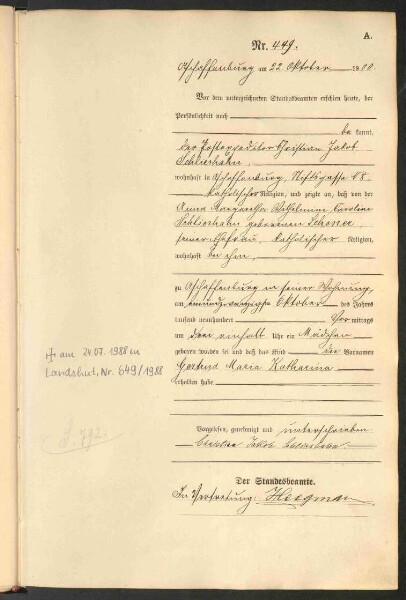 A.
Nr. 449.
Aschaffenburg am 22. Oktober 1900.
Vor dem unterzeichneten Standesbeamten erschien heute, der
Persönlichkeit nach
be kannt,
der Postexpeditor Christian Jakob
wohnhaft in Aschaffenburg, Stiftsgasse
katholischer Religion, und zeigte an, daß von der
Anna Margaretha Wilhelmine Caroline
geborenen
seiner Ehefrau, katholischer Religion,
wohnhaft bei ihm,
zu Aschaffenburg in seiner Wohnung,
am Oktober des Jahres
tausend neunhundert Vor mittags
um drei einhalb Uhr ein Mädchen
geboren worden sei und daß das Kind die Vornamen
Gertrud Maria Katharina
erhalten habe
Vorgelesen, genehmigt und unterschrieben
Jakob
Der Standesbeamte.
In Vertretung:
am 24.07.1988 in
Landshut, Nr. 649/1988